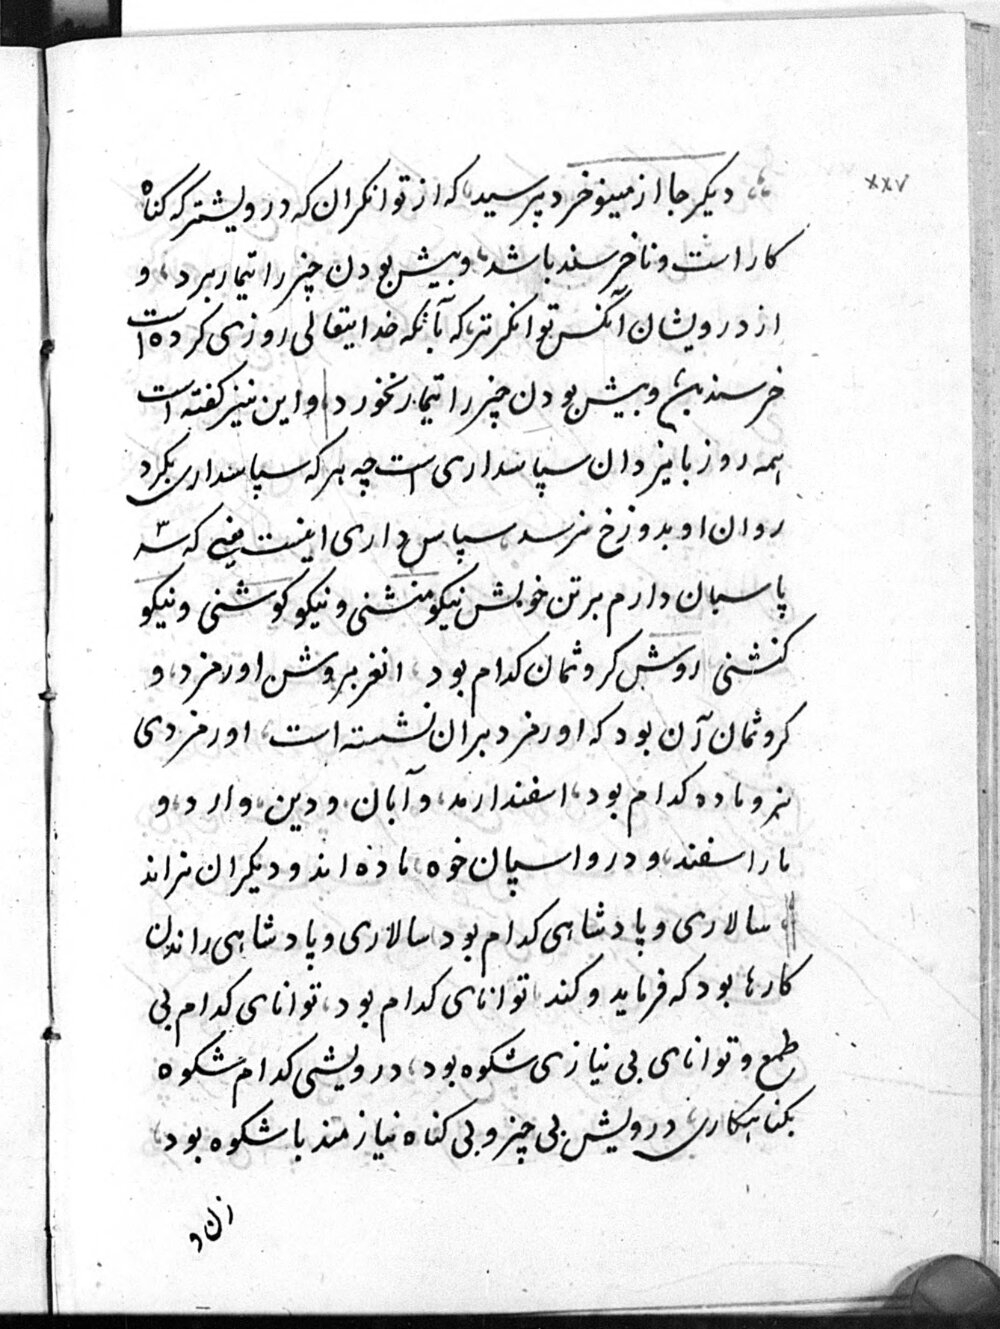 ۲۲۷
دیکر جا از مینوخرد پرسید، که از توانکران که درویشتر که کناه
کار است و ناخرسند باشد، و بیش بودن چیز را تیمار برد، و
از درویشان آنکس توانکرتر، که بآنکه خدایتعالی روزی کرده است
خرسند و بیش بودن چیز را تیمار نخورد، و این نیز کفته است
همه روز با یزدان سپاسداری است چه هر که سپاسداری بکرد
روان او بدوزخ نرسد، سپاس داری اینست یعنی که سه
پاسبان دارم بر تن خویش نیکو منشنی و نیکو کوشنی و نیکو
کنشنی، روش کروثمان کدام بود، انغر بروش اورمزد، و
کروثمان آن بود که اورمزد بران نشسته است، اورمزدی
نر و ماده کدام بود، اسفندارمد، و آبان و دین، و ارد، و
ماراسفند، و درواسپان خوه، ماده اند و دیکران نر اند
سالاری و پادشاهی کدام بود، سالاری و پادشاهی راندن
کارها بود که فرماید و کند، توانای کدام بود، توانای کدام بی
طمع و توانای بی نیازی شکوه بود، درویشی کدام شکوه
بکناهکاری، درویش بی چیز و بی کناه نیازمند باشکوه بود،